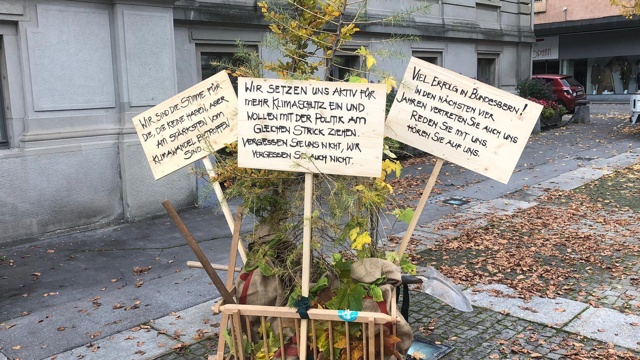 WIR SIND DIE STIMME FÜR
DIE, DIE KEINE HABEN, ABER
AM STÄRKSTEN VOM
KLIMAWANDEL BETROFFEN
SIND.
WIR SETZEN UNS AKTIV FÜR
MEHR KLIMASCHUTZ EIN UND
WOLLEN MIT DER POLITIK AM
GLEICHEN STRICK ZIEHEN.
VERGESSEN SIE UNS NICHT, WIR
VERGESSEN SIE AUCH NICHT.
VIEL ERFOLG IN BUNDESBERN!
IN DEN NÄCHSTEN VIER
JAHREN VERTRETEN SIE AUCH UNS.
REDEN SIE MIT UNS,
HÖREN SIE AUF UNS.